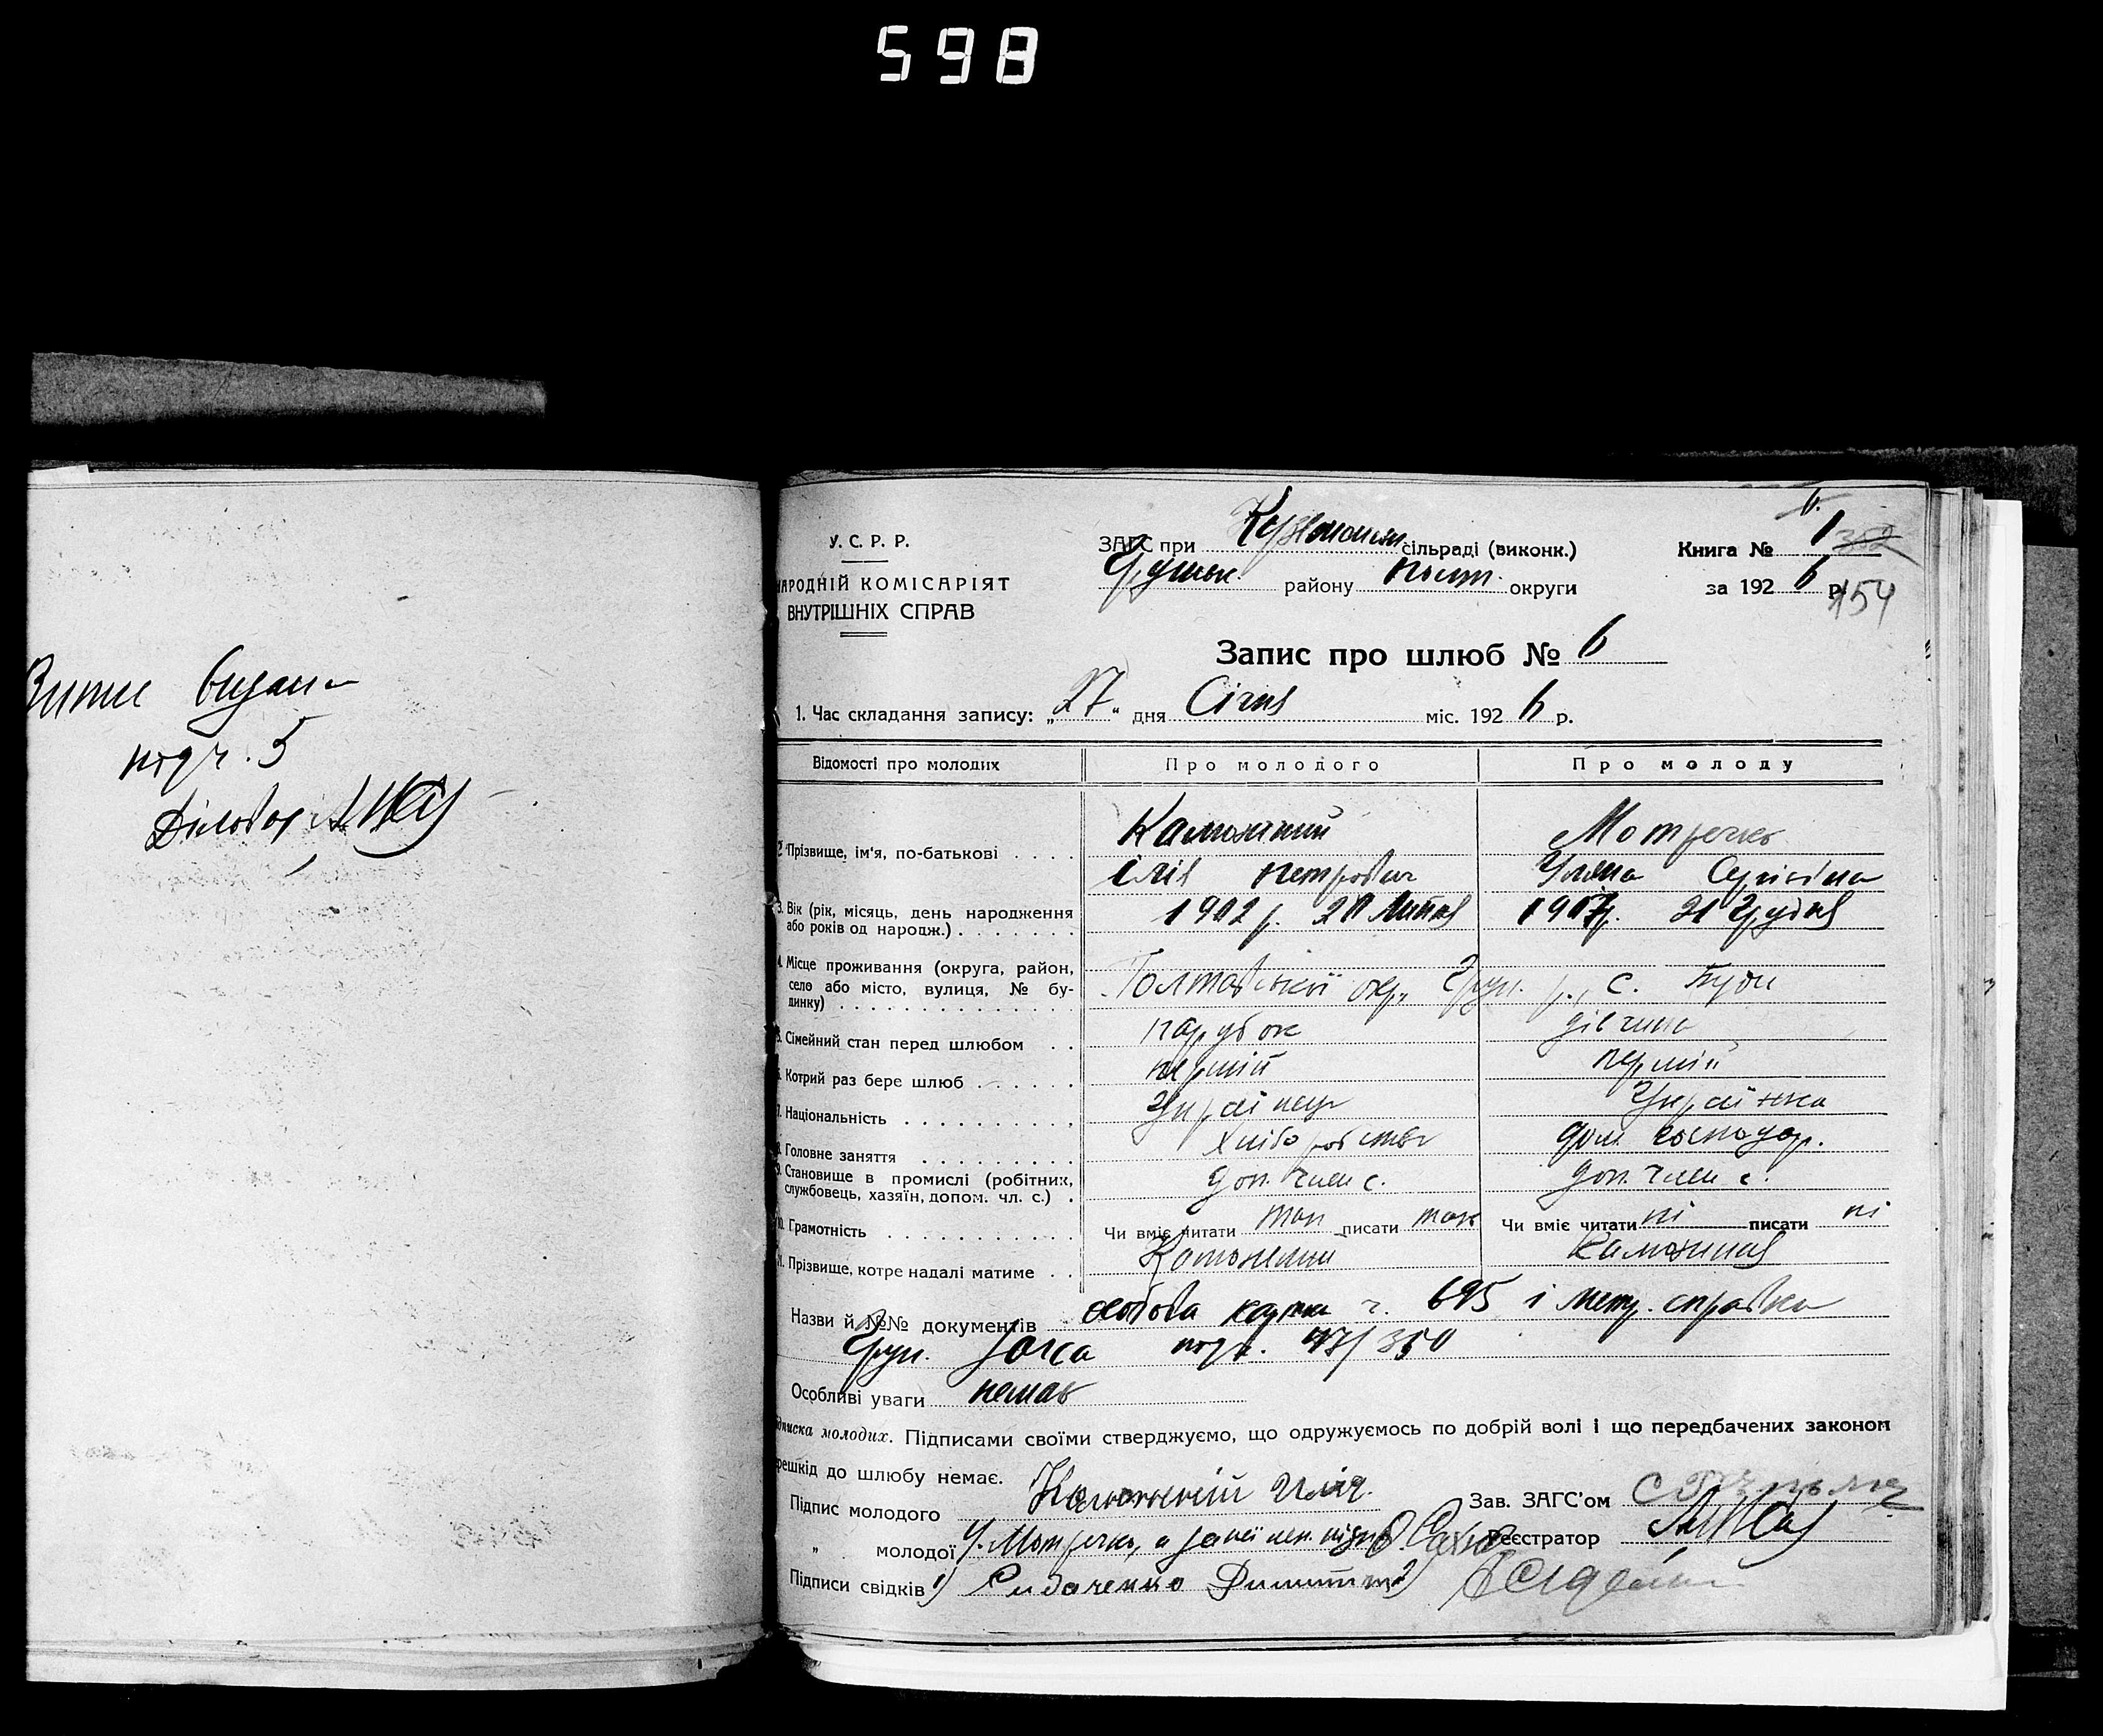 598
Витяг видано
подч. 5
Діловод
У. С. Р. Р.
НАРОДНІЙ КОМІСАРІЯТ
ВНУТРІШНІХ СПРАВ
ЗАГС при сільраді (виконк.)
Грунськ. району Полт. округи
Книга № 1
за 1926 р.
154
Запис про шлюб № 6
1. Час складання запису: „27“ дня Січня міс. 1926 р.
Відомості про молодих Про молодого Про молоду
2. Прізвище, ім'я, по-батькові . . . . Калюжний Мотречко
Ілія Петрович Уляна
3. Вік (рік, місяць, день народження або років од народж.) . . . . . . . 1902 р. 20 Липня 1907 р. 21 Грудня
4. Місце проживання (округа, район, село або місто, вулиця, № будинку) . . . . . . . Полтавської окр., Грун. р., с. Буди
5. Сімейний стан перед шлюбом . . парубок дівчина
6. Котрий раз бере шлюб . . . . . . перший перший
7. Національність . . . . . . . . . . Українець Українка
8. Головне заняття . . . . . . . . . хліборобство дом. господар.
9. Становище в промислі (робітник, службовець, хазяїн, допом. чл. с.) . доп. член с. доп. член с.
10. Грамотність . . . . . . . . . . . Чи вміє читати так писати так Чи вміє читати ні писати ні
11. Прізвище, котре надалі матиме . . Калюжний Калюжная
Назви й №№ документів особова картка ч. 695 і метр. справка
Грун. Загса подч. 47/350
Особливі уваги немає
Підписка молодих. Підписами своїми стверджуємо, що одружуємось по добрій волі і що передбачених законом
перешкід до шлюбу немає.
Підпис молодого Калюжний Илія Зав. ЗАГС'ом
„ молодої У. Мотречко, а за неї неп. підп. Реєстратор
Підписи свідків 1) Сидаченко Димитрій 2)